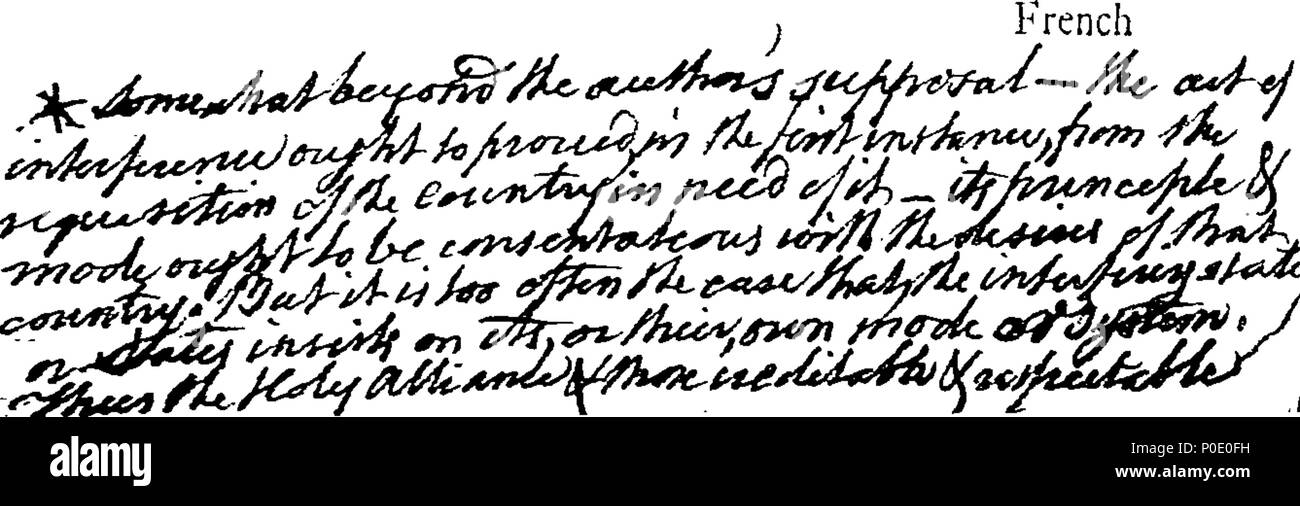 French
* Somewhat beyond the author's supposal — the act of
interference ought to proceed, in the first instance, from the
requisition of the country in need of it — its principle &
mode ought to be consentaneous with the desires of that
country. But it is too often the case that, the interfering state
or states insists on its, or their, own mode or system.
Thus the Holy Alliance & those creditable & respectable
alamy
Image ID: P0E0FH
www.alamy.com